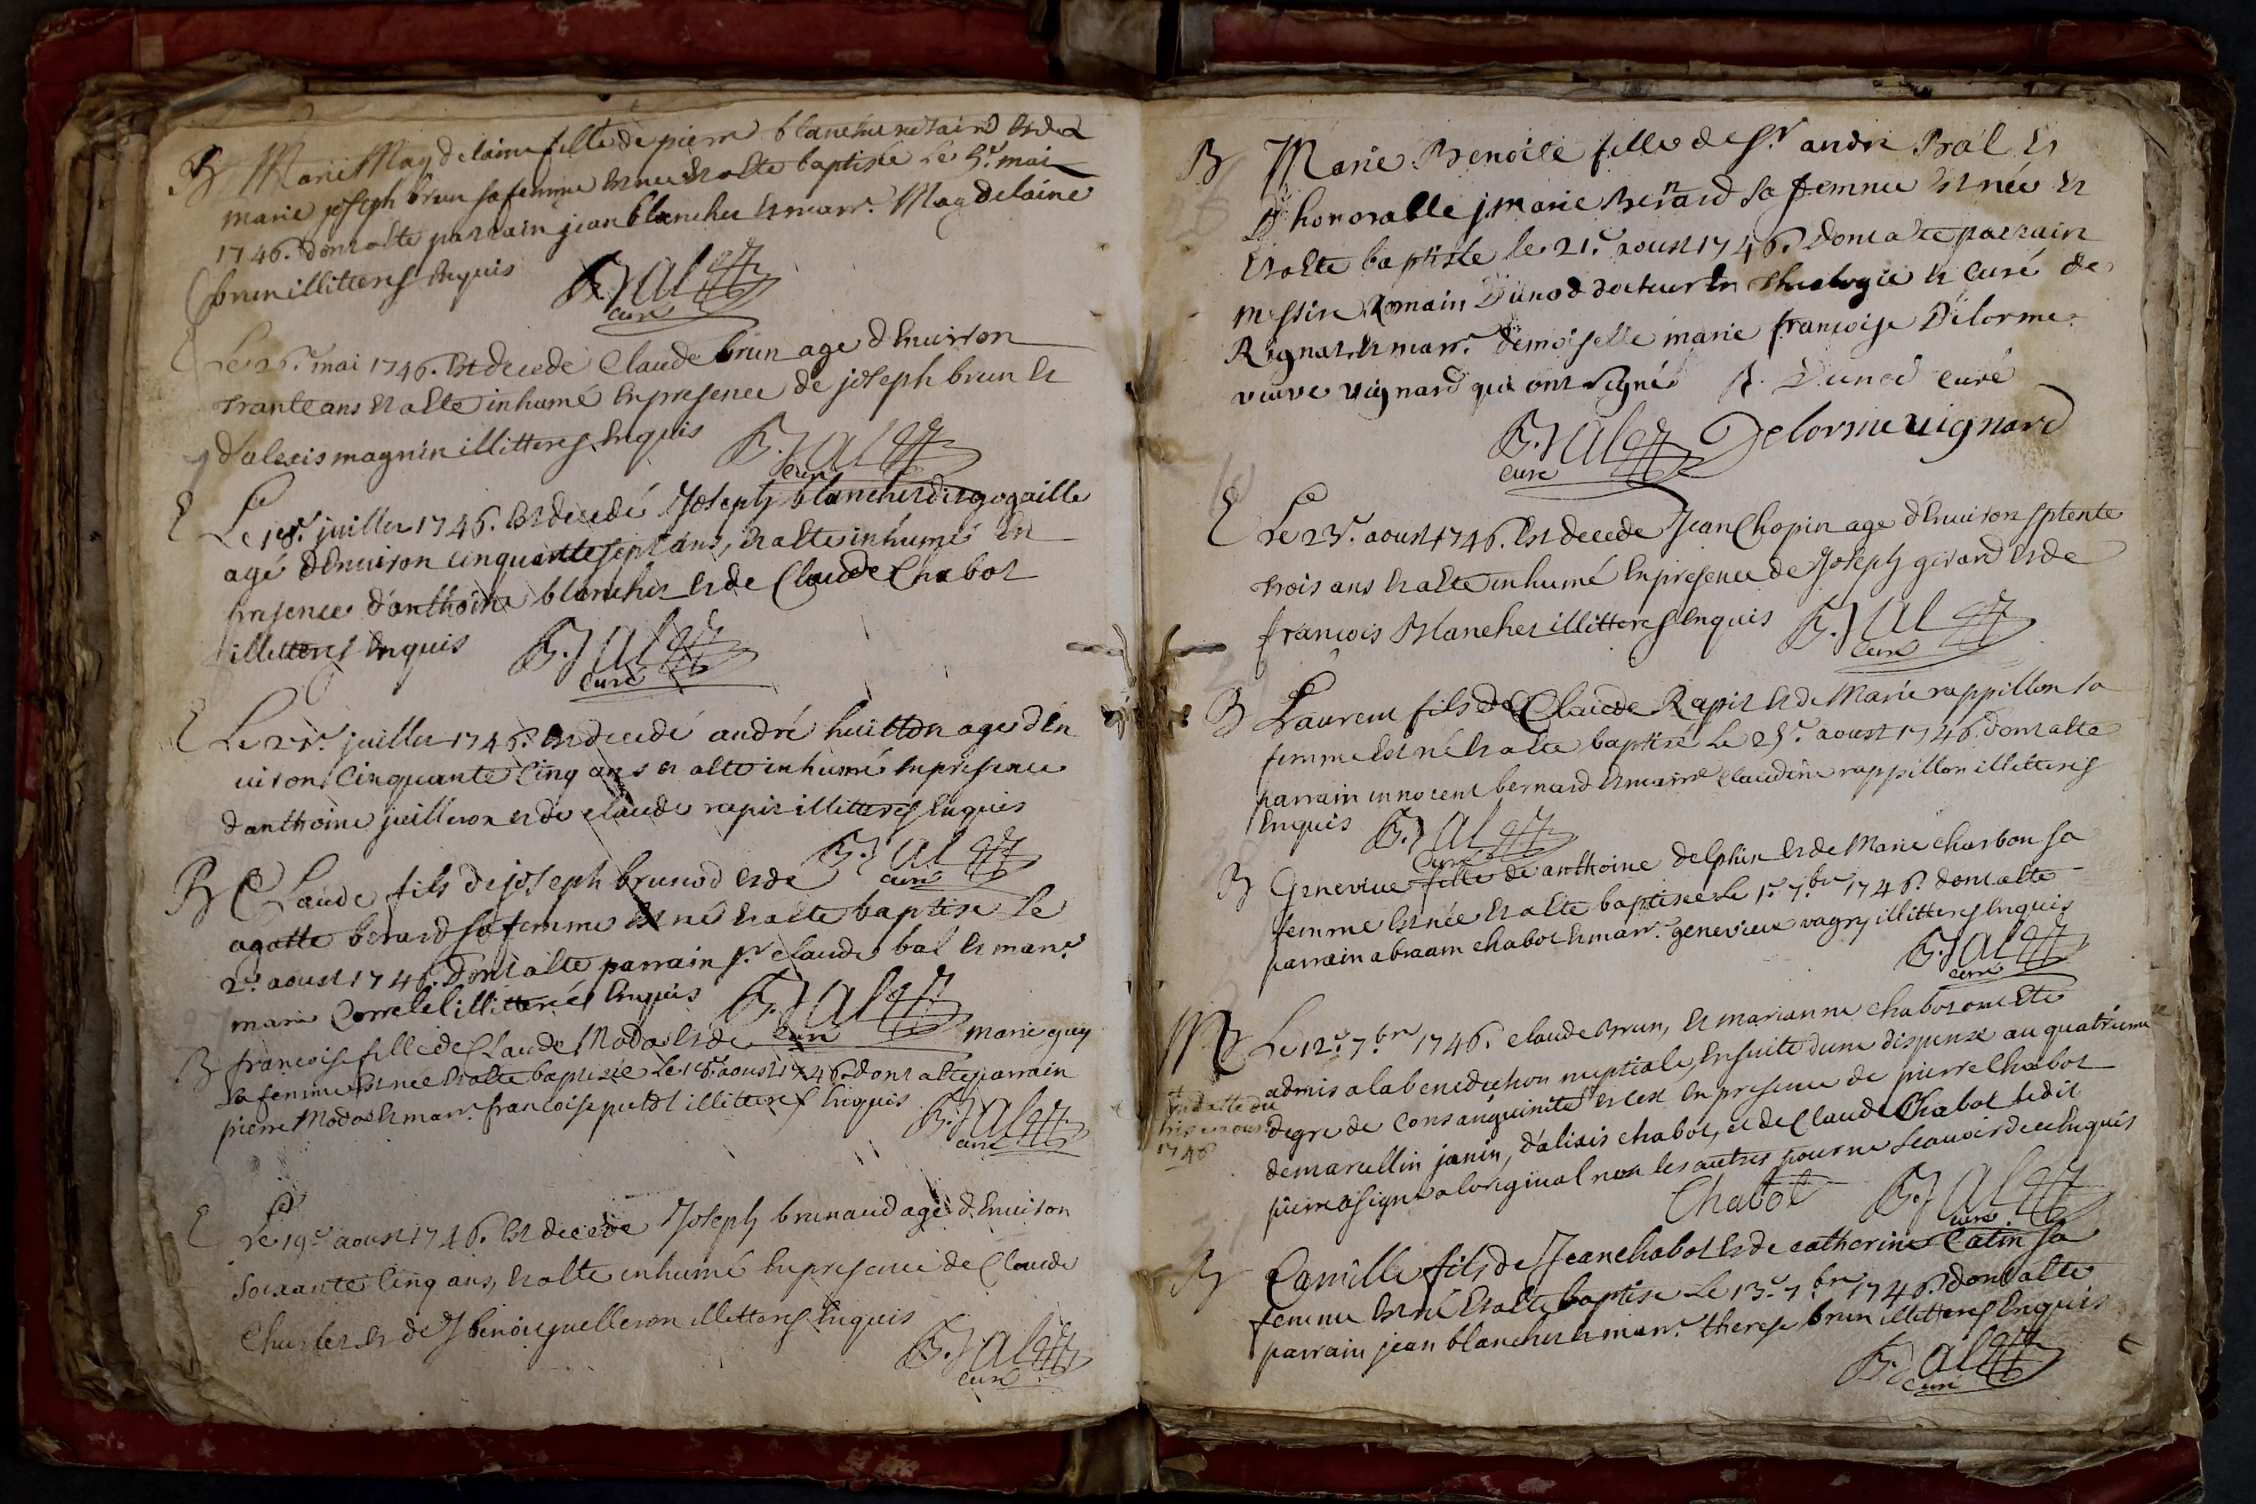 B Marie Magdelaine fille de pierre blanchet notaire et de
marie joseph brun sa femme est née et a été baptisée le 5.e mai
1746. dont a été parrain jean blanchet et marr. Magdelaine
brun illitteres enquis B. Bal
curé
E Le 26.e mai 1746. est decede Claude brun age d'environ
trante ans et a été inhumé en presence de joseph brun et
d'alexis magnin illitteres enquis B. Bal
curé
E Le juillet 1746. est decedé Joseph blanchet
agé d'environ cinquante sept ans, et a été inhumé en
presence d'anthoine blanchet et de Claude Chabot
illitteres enquis B. Bal
curé
E Le juillet 1746. est decedé andré age d'en
viron Cinquante Cinq ans et a été inhumé en presence
d'anthoine juilleron et de claude rapit illitteres enquis
B. Bal
curé
B Claude fils de joseph brunod et de
agatte berard sa femme est né et a été baptisé le
2.e aoust 1746. dont a été parrain sr. claude bal et marr.
marie illitteres enquis B. Bal
curé
B francoise fille de Claude Modas et de marie guy
sa femme est née et a été baptisée le aoust 1746. dont a été parrain
pierre Modas et marr. francoise illitteres enquis B. Bal
curé
E Le 19.e aoust 1746. est decede Joseph brunaud age d'environ
soixante Cinq ans, et a été inhumé en presence de Claude
et de illitteres enquis
B. Bal
curé
B Marie Benoite fille de Sr. andre Bal et
D'honorable j. marie Benard sa femme est née et
et a été baptisée le 21.e aoust 1746. dont a été parrain
messire Romain Dunod docteur en Theologie et curé de
Rignat et marr. demoiselle marie francoise Delorme
veuve vignard qui ont signé R. Dunod curé
B. Bal Delorme vignard
curé
E Le 23.e aoust 1746. est decede Jean Chopin age d'environ septente
trois ans et a été inhumé en presence de Joseph girard et de
francois Blanchet illitteres enquis B. Bal
curé
B Laurent fils de Claude Rapit et de Marie rappillon sa
femme est né et a été baptisé le 25.e aoust 1746. dont a été
parrain innocent bernard et marr. claudine rappillon illitteres
enquis B. Bal
curé
B Genevieve fille de anthoine delphin et de Marie charbon sa
femme est née et a été baptisée le 1.er 7.bre 1746. dont a été
parrain abraam chabot et marr. genevieve vagry illitteres enquis
B. Bal
curé
M Le 12.e 7.bre 1746. claude Brun, et marianne chabot ont ete
admis a la benediction nuptiale ensuite d'une dispense au quatrieme
degre de consanguinité et c'est en presence de pierre Chabot
de marcellin janin, d'alixis chabot, et de Claude Chabot ledit
pierre a signé a l'original non les autres pour ne scavoir de ce enquis
Chabot B. Bal
curé
1746
B Camille fils de Jean chabot et de catherine Catin sa
femme est né et a été baptisé le 13.e 7.bre 1746. dont a été
parrain jean blanchet et marr. therese brun illitteres enquis
B. Bal
curé